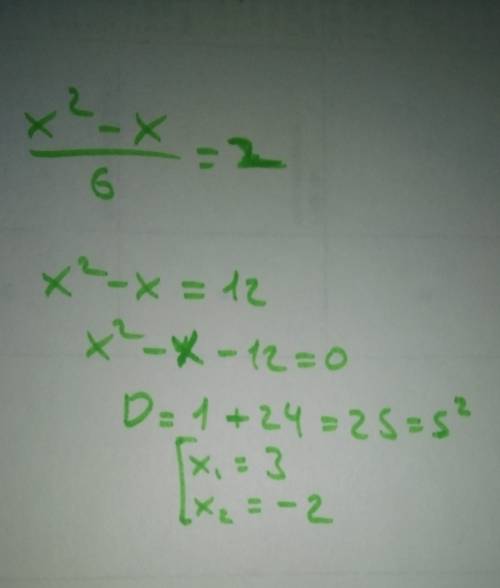 x² - x
6
= 2
x² - x = 12
x² - x - 12 = 0
D = 1 + 24 = 25 = 5²
x₁ = 3
x₂ = -2